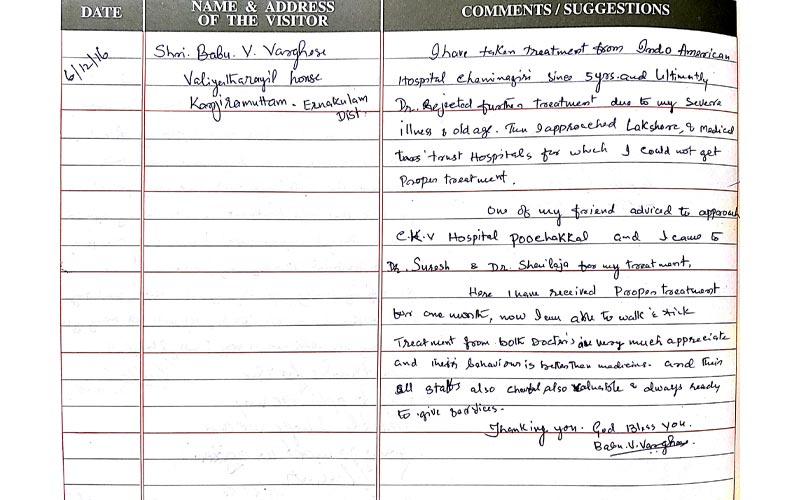 DATE
NAME & ADDRESS
OF THE VISITOR
COMMENTS / SUGGESTIONS
6/12/16
Shri. Babu. V. Varghese
Valiyatharayil house
Kanjiramuttam. Ernakulam
Dist.
I have taken treatment from Indo American
Hospital Chemmagiri since 5yrs. and Ultimatly
Dr. Rejected further treatment due to my severe
illness & old age. Then I approached Lakshore, & Medical
trust Hospitals for which I could not get
Proper treatment.
One of my friend adviced to approach
C.K.V Hospital Poochakkal and I came to
Dr. Suresh & Dr. Shailaja for my treatment,
Here I have received Proper treatment
for one month, now I am able to walk c stick
Treatment from both Doctor's are very much appreciate
and their behaviour is better than medicine. and their
all staffs also valuable & always ready
to give services.
Thanking you. God Bless you.
Babu.V.Varghese